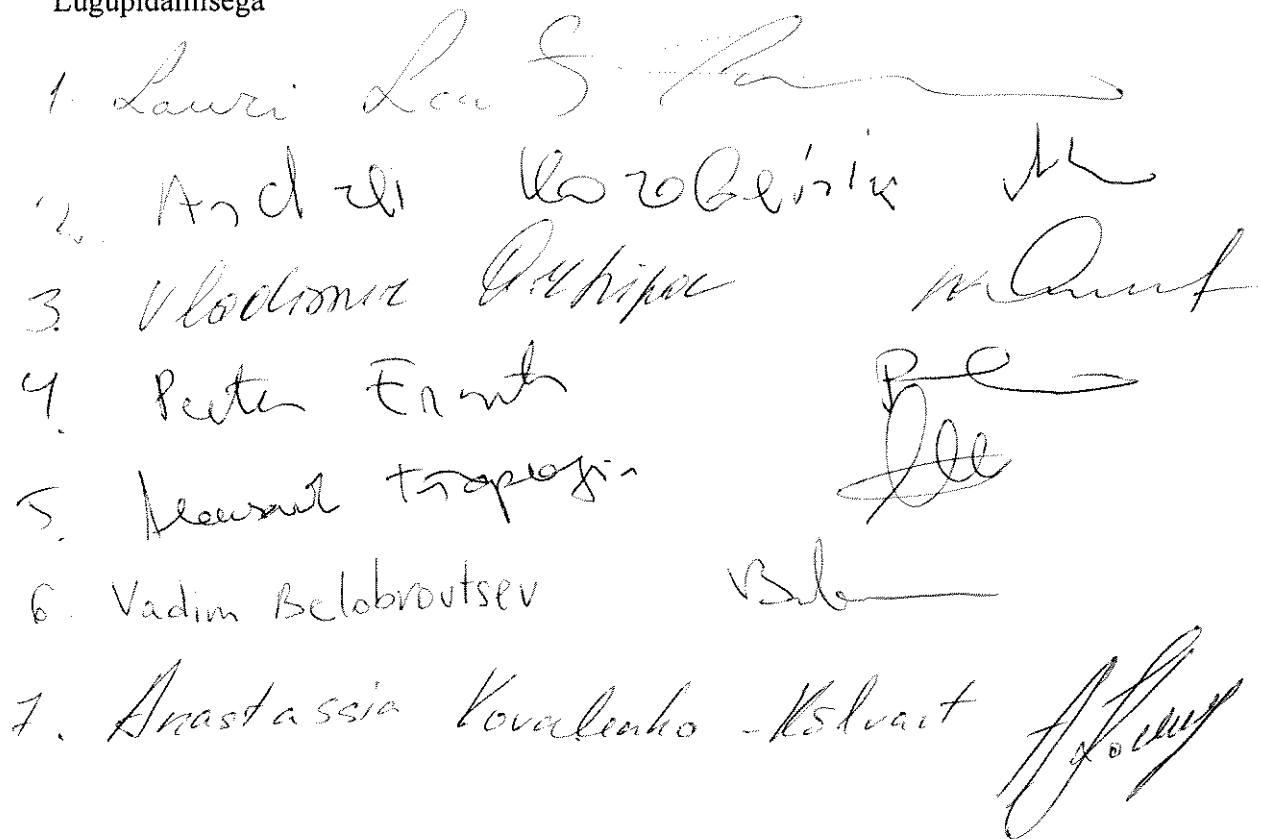 Lugupidamisega
1. Lauri Laats
2. Andrei Korobeinik
3. Vladimir Arhipov
4. Peeter Ernits
5. Aleksandr Tšaplõgin
6. Vadim Belobrovtsev
7. Anastassia Kovalenko-Kõlvart